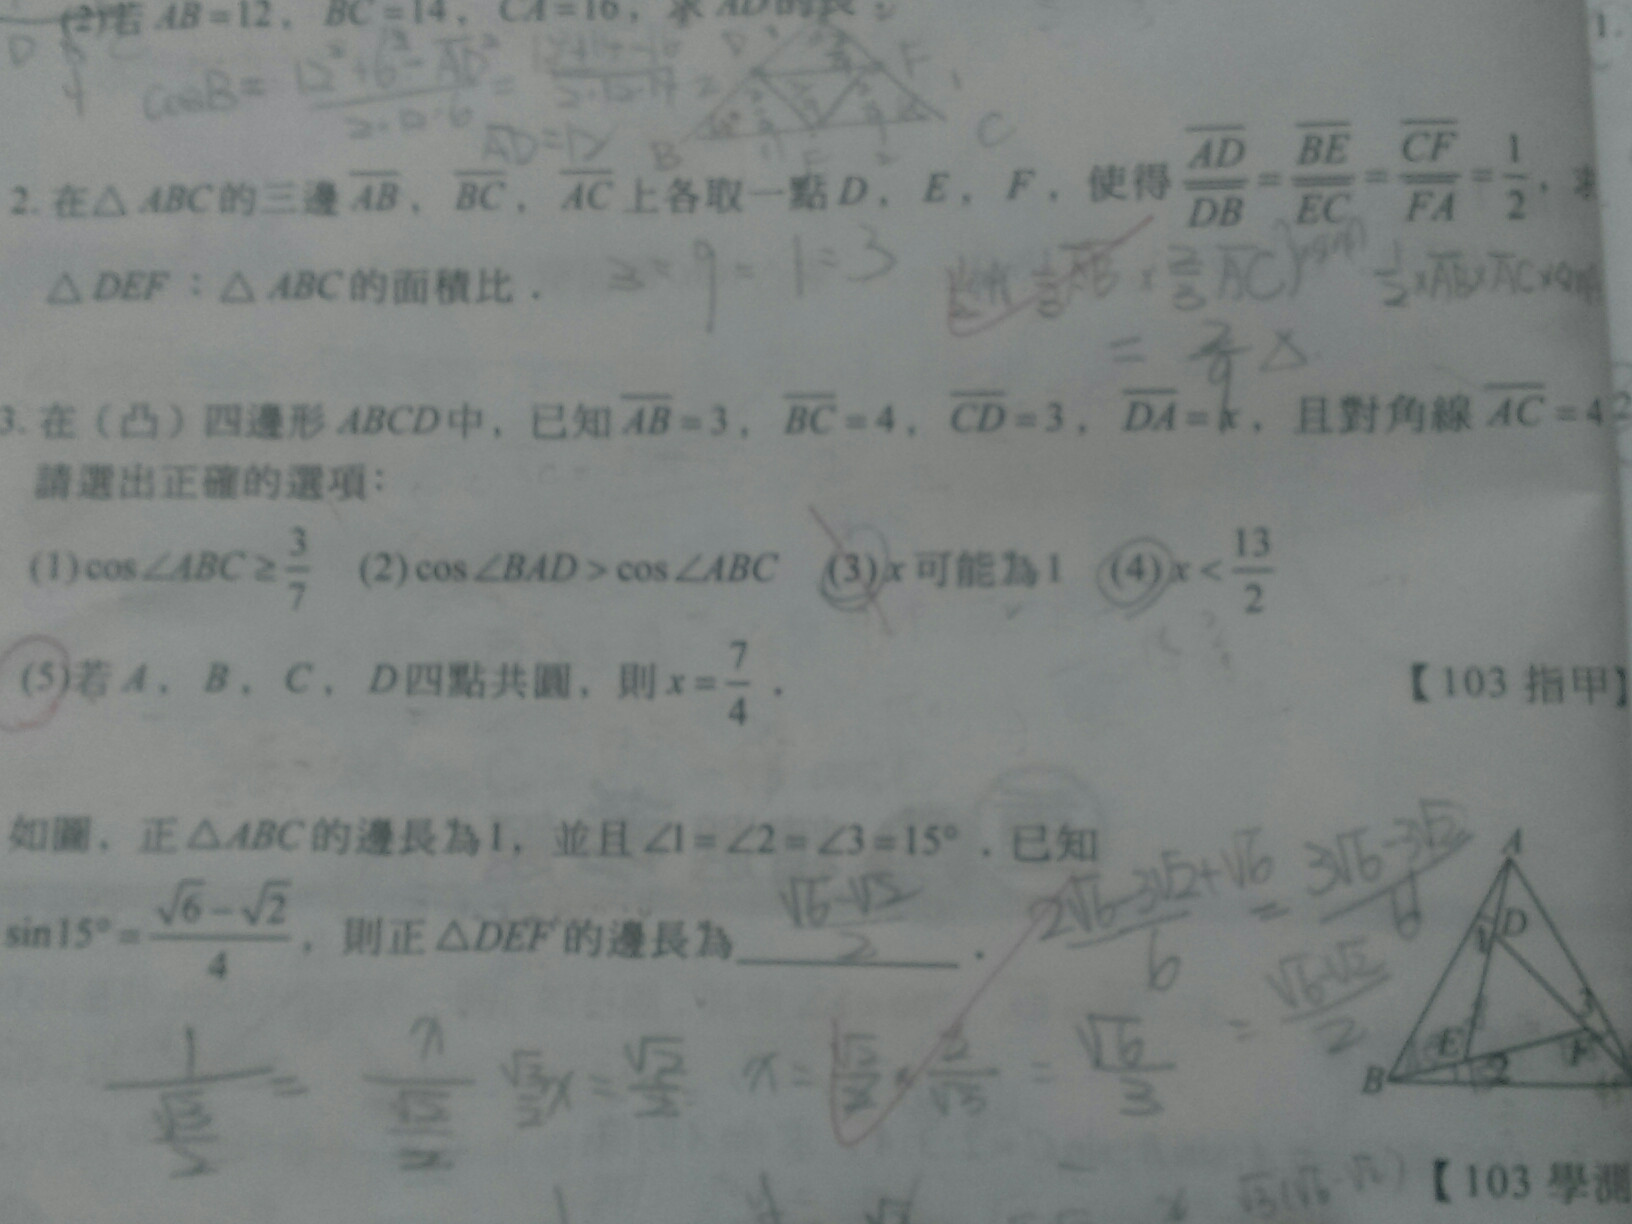 (2)若 AB=12，BC=14，CA=16，求 AD 的長．
cosB= 12²+6²-AD² / 2·12·6 =
AD=12
B C F
2. 在△ABC的三邊AB，BC，AC上各取一點D，E，F，使得 AD/DB = BE/EC = CF/FA = 1/2，求
△DEF：△ABC的面積比．
3=9=1=3
1/3 AB × 2/3 AC 1/2×AB×AC×
= 2/9 △
3. 在（凸）四邊形ABCD中，已知AB=3，BC=4，CD=3，DA=x，且對角線AC=4
請選出正確的選項：
(1)cos∠ABC≥3/7 (2)cos∠BAD>cos∠ABC (3)x可能為1 (4)x<13/2
(5)若A，B，C，D四點共圓，則x=7/4．
【103 指甲】
如圖，正△ABC的邊長為1，並且∠1=∠2=∠3=15°．已知
sin15°=√6-√2/4，則正△DEF的邊長為 √6-√2/2 ．
2√6-3√2+√6/6 = 3√6-3√2/6
= √6-√2/2
1/(√3/2) = x/(√2/2) √3/2 x = √2/2 x = √2/2 × 2/√3 = √6/3
A
1 D
3
B E 2 F
【103 學測
1.